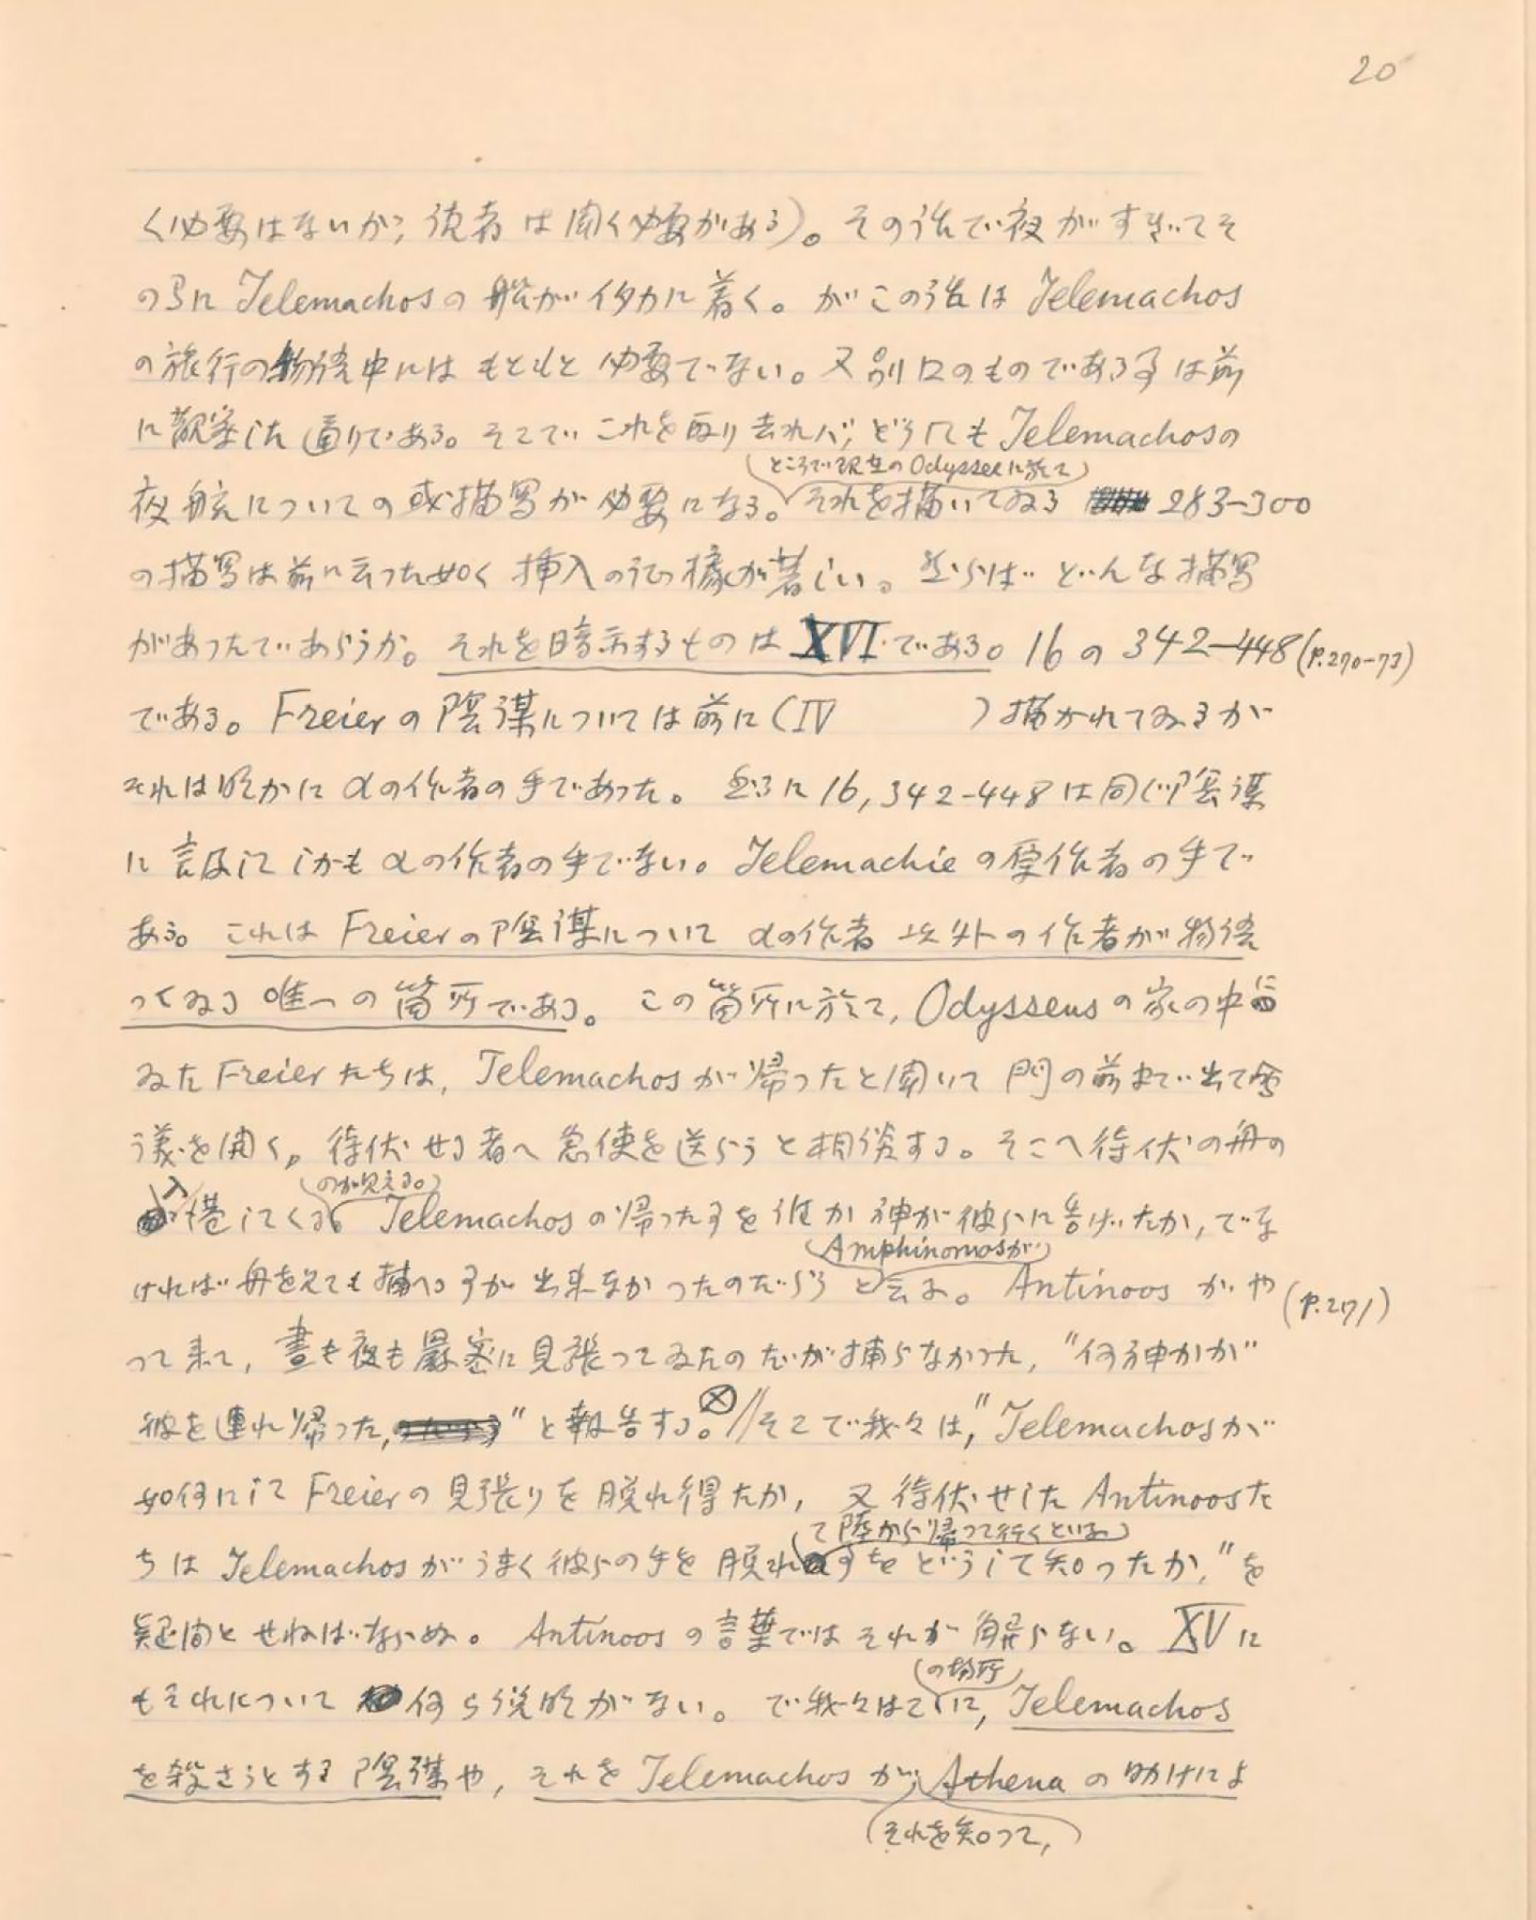 20
く必要はないか、読者は聞く必要がある)。その話で夜がすぎてそ
の間に Telemachosの船がイタカに着く。がこの話は Telemachos
の旅行の物語中にはもともと必要でない。又別口のものである事は前
に観察した通りである。そこでこれを取り去れバ、どうしても Telemachosの
(ところで現在の Odysseeに於て)
夜航についての或描写が必要になる。それを描いてゐる 283-300
の描写は前に云った如く挿入の証據が著しい。然らばどんな描写
があったであらうか。それを暗示するものは XVI.である。16の 342-448 (P.270-73)
である。Freierの陰謀については前に(IV )描かれてゐるが
それは明かに αの作者の手であった。然るに 16, 342-448は同じ陰謀
に言及してしかも αの作者の手でない。Telemachieの原作者の手で
ある。これは Freierの陰謀について αの作者以外の作者が物語
ってゐる唯一の箇所である。この箇所に於て, Odysseusの家の中に
ゐた Freierたちは, Telemachosが帰ったと聞いて門の前まで出て会
議を開く。待伏せる者へ急使を送らうと相談する。そこへ待伏の舟の
(のが見える。)
入港してくる Telemachosの帰った事を誰か神が彼らに告げたか, でな
(Amphinomosが)
ければ舟を見ても捕へる事が出来なかったのだらうと云ふ。Antinoosがや (P.271)
って来て, 晝も夜も嚴密に見張ってゐたのだが捕らなかった, "何神かが
彼を連れ帰った," と報告する。⊗//そこで我々は, "Telemachosが
如何にして Freierの見張りを脱れ得たか, 又待伏せした Antinoosた
(て陸から帰って行くといふ)
ちは Telemachosがうまく彼らの手を脱れ事をどうして知ったか," を
疑問とせねばならぬ。Antinoosの言葉ではそれが解らない。XVに
もそれについて何ら説明がない。で我々はこゝに, Telemachos
(の場所)
を殺さうとする陰謀や, それを Telemachosが Athenaの助けによ
(それを知って,)